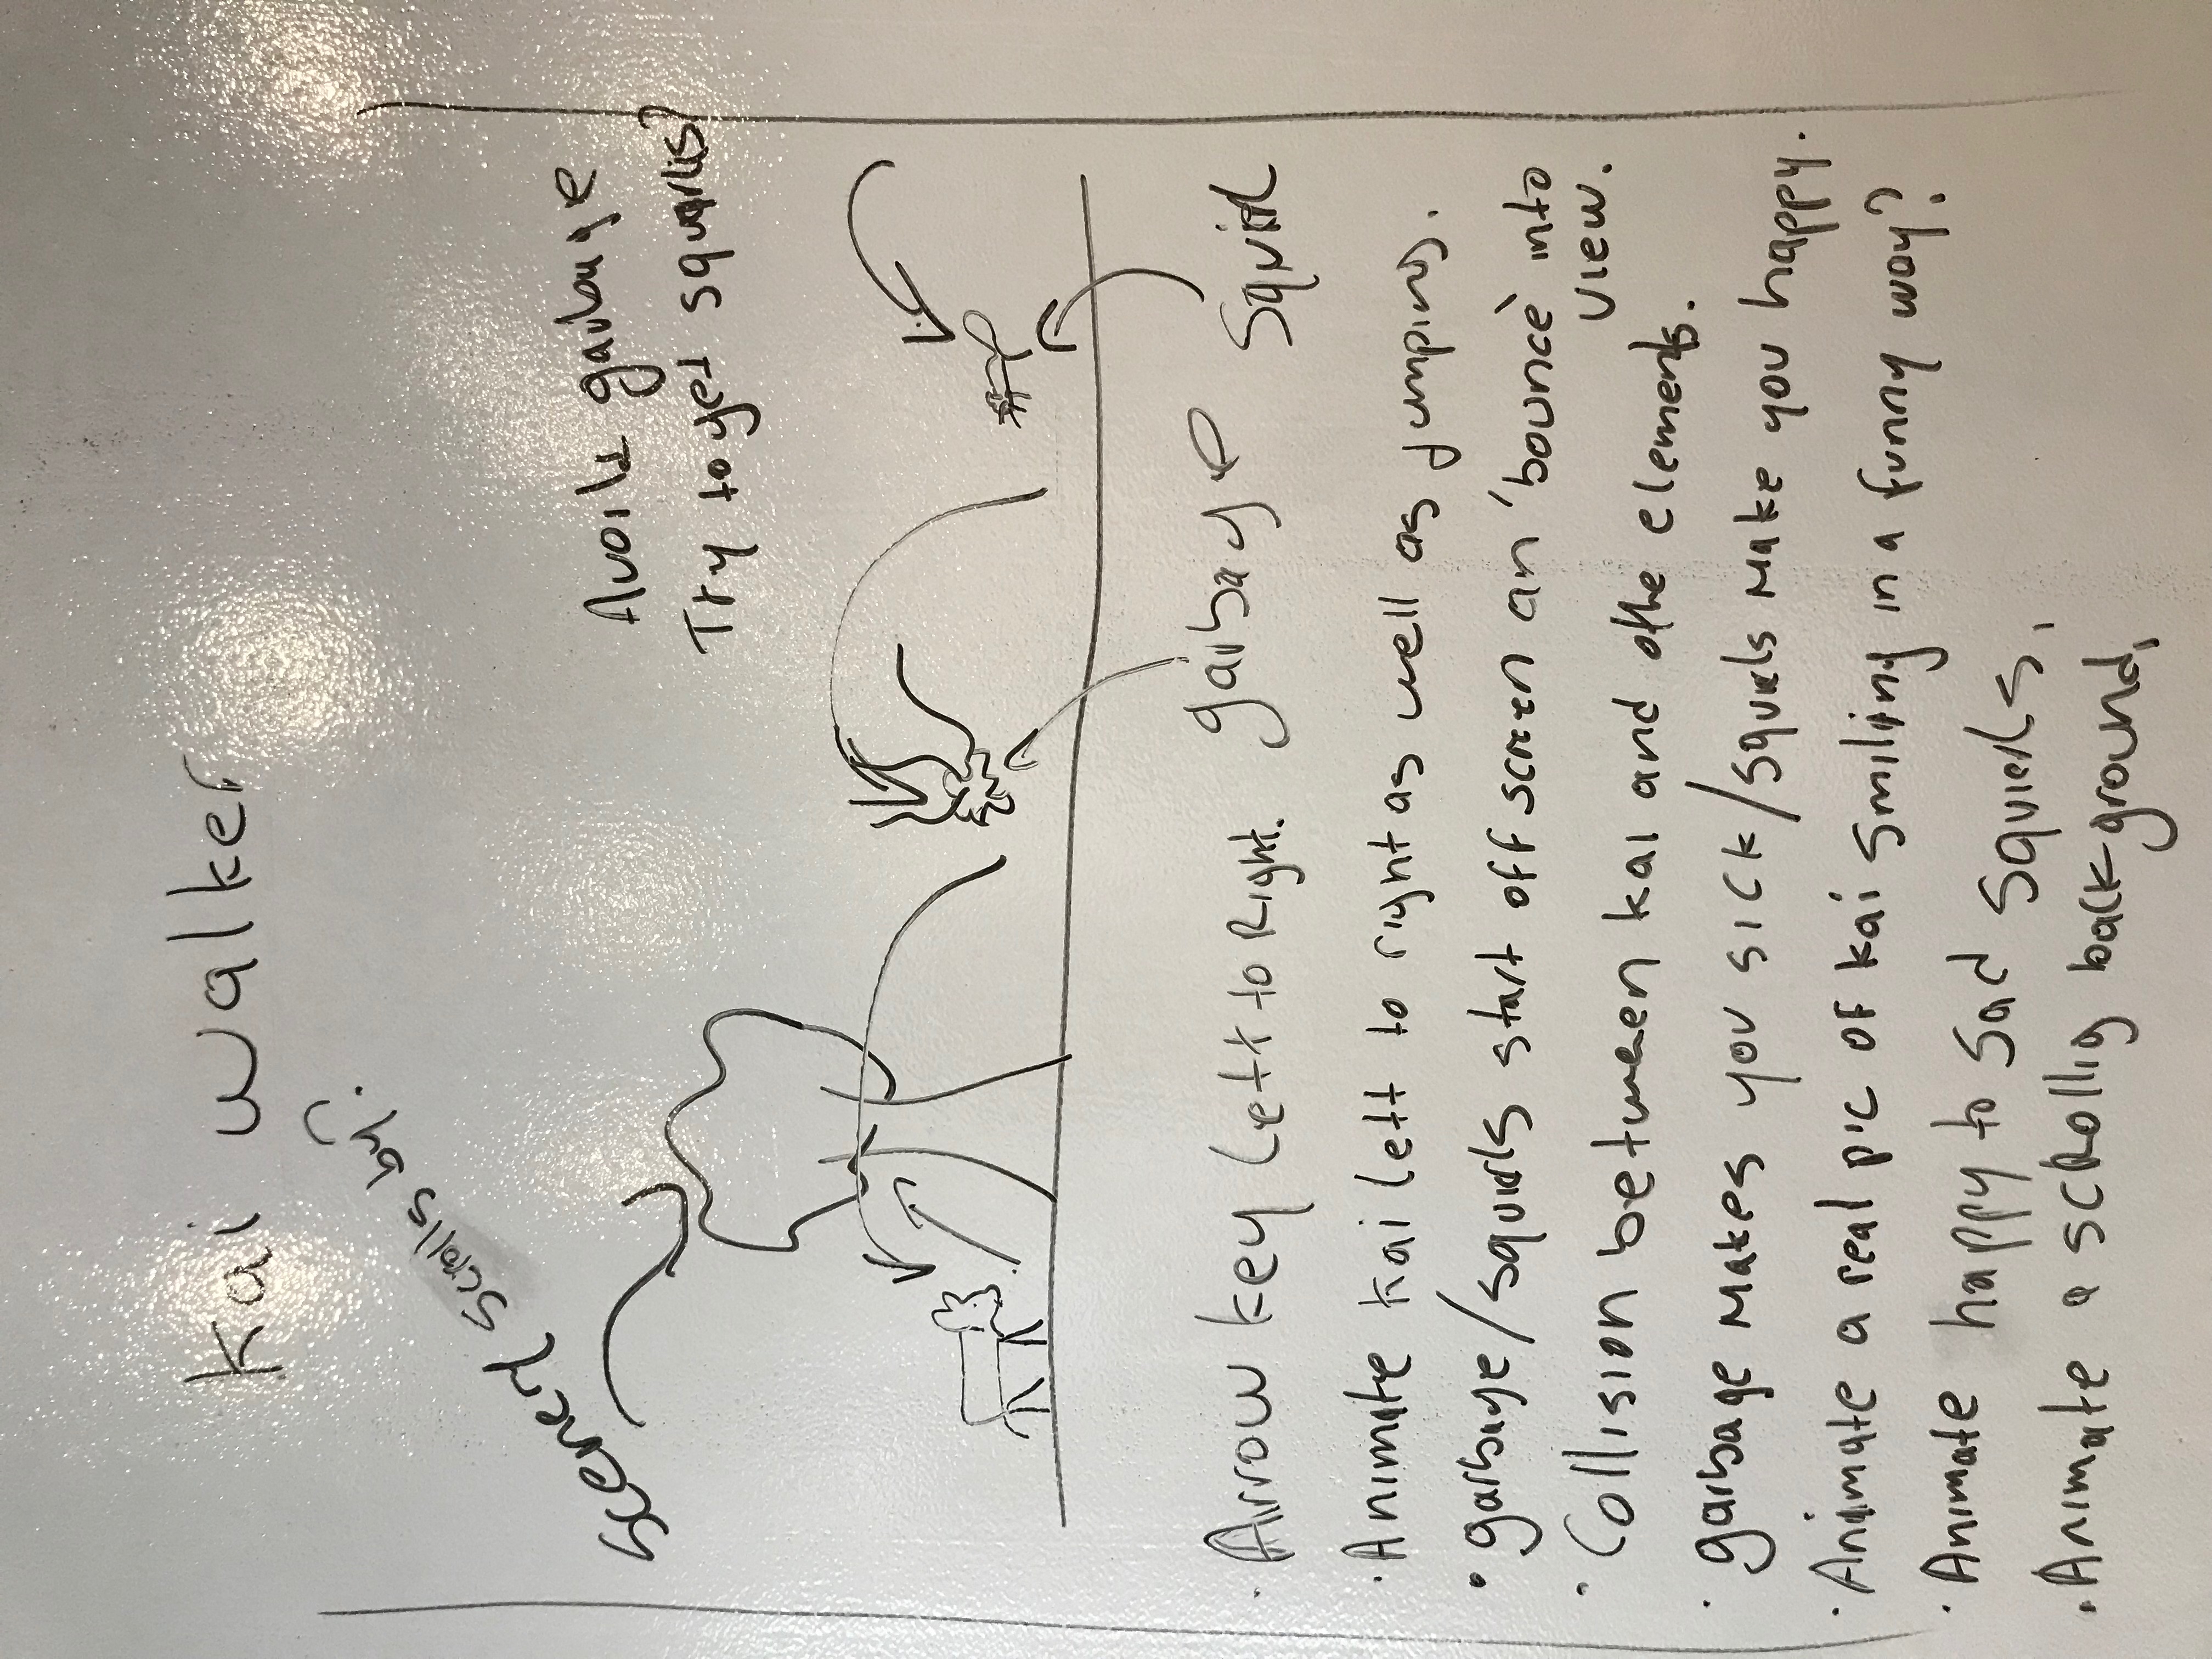 Kai Walker
Scenery scrolls by?
Avoid garbage
Try to get squirlis?
garbage
Squirl
· Arrow key Left to Right.
· Animate Kai left to right as well as jumping.
· garbage/squirls start off screen an 'bounce' into
view.
· Collision between Kai and othe elements.
· garbage makes you sick/squirls make you happy.
· Animate a real pic of Kai smiling in a funny way?
· Animate happy to sad squierls.
· Animate a scrollig background.